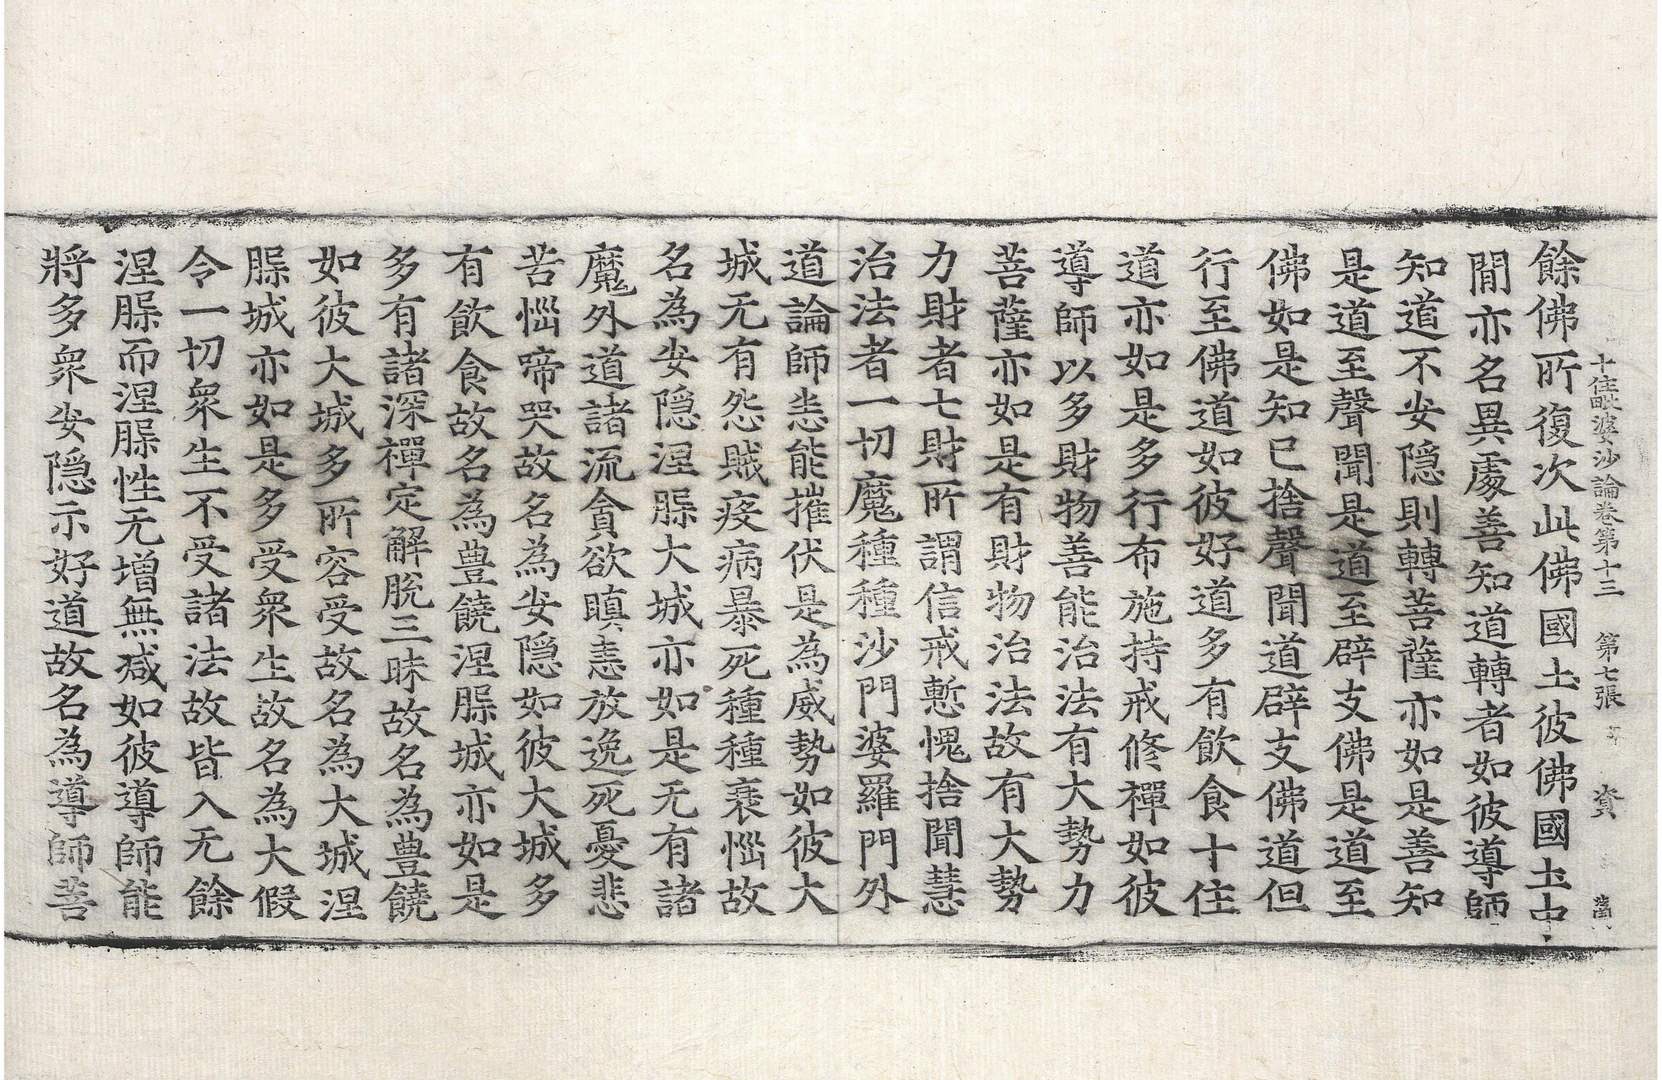 十住毗婆沙論卷第十三　第七張　資
餘佛所復次此佛國土彼佛國土中
間亦名異處善知道轉者如彼導師
知道不安隱則轉菩薩亦如是善知
是道至聲聞是道至辟支佛是道至
佛如是知已捨聲聞道辟支佛道但
行至佛道如彼好道多有飲食十住
道亦如是多行布施持戒修禪如彼
導師以多財物善能治法有大勢力
菩薩亦如是有財物治法故有大勢
力財者七財所謂信戒慙愧捨聞慧
治法者一切魔種種沙門婆羅門外
道論師恙能摧伏是為威勢如彼大
城无有怨賊疫病暴死種種衰惱故
名為安隱涅槃大城亦如是无有諸
魔外道諸流貪欲瞋恚放逸死憂悲
苦惱啼哭故名為安隱如彼大城多
有飲食故名為豊饒涅槃城亦如是
多有諸深禪定解脫三昧故名為豊饒
如彼大城多所容受故名為大城涅
槃城亦如是多受眾生故名為大假
令一切眾生不受諸法故皆入无餘
涅槃而涅槃性无增無減如彼導師能
將多眾安隱示好道故名為導師菩